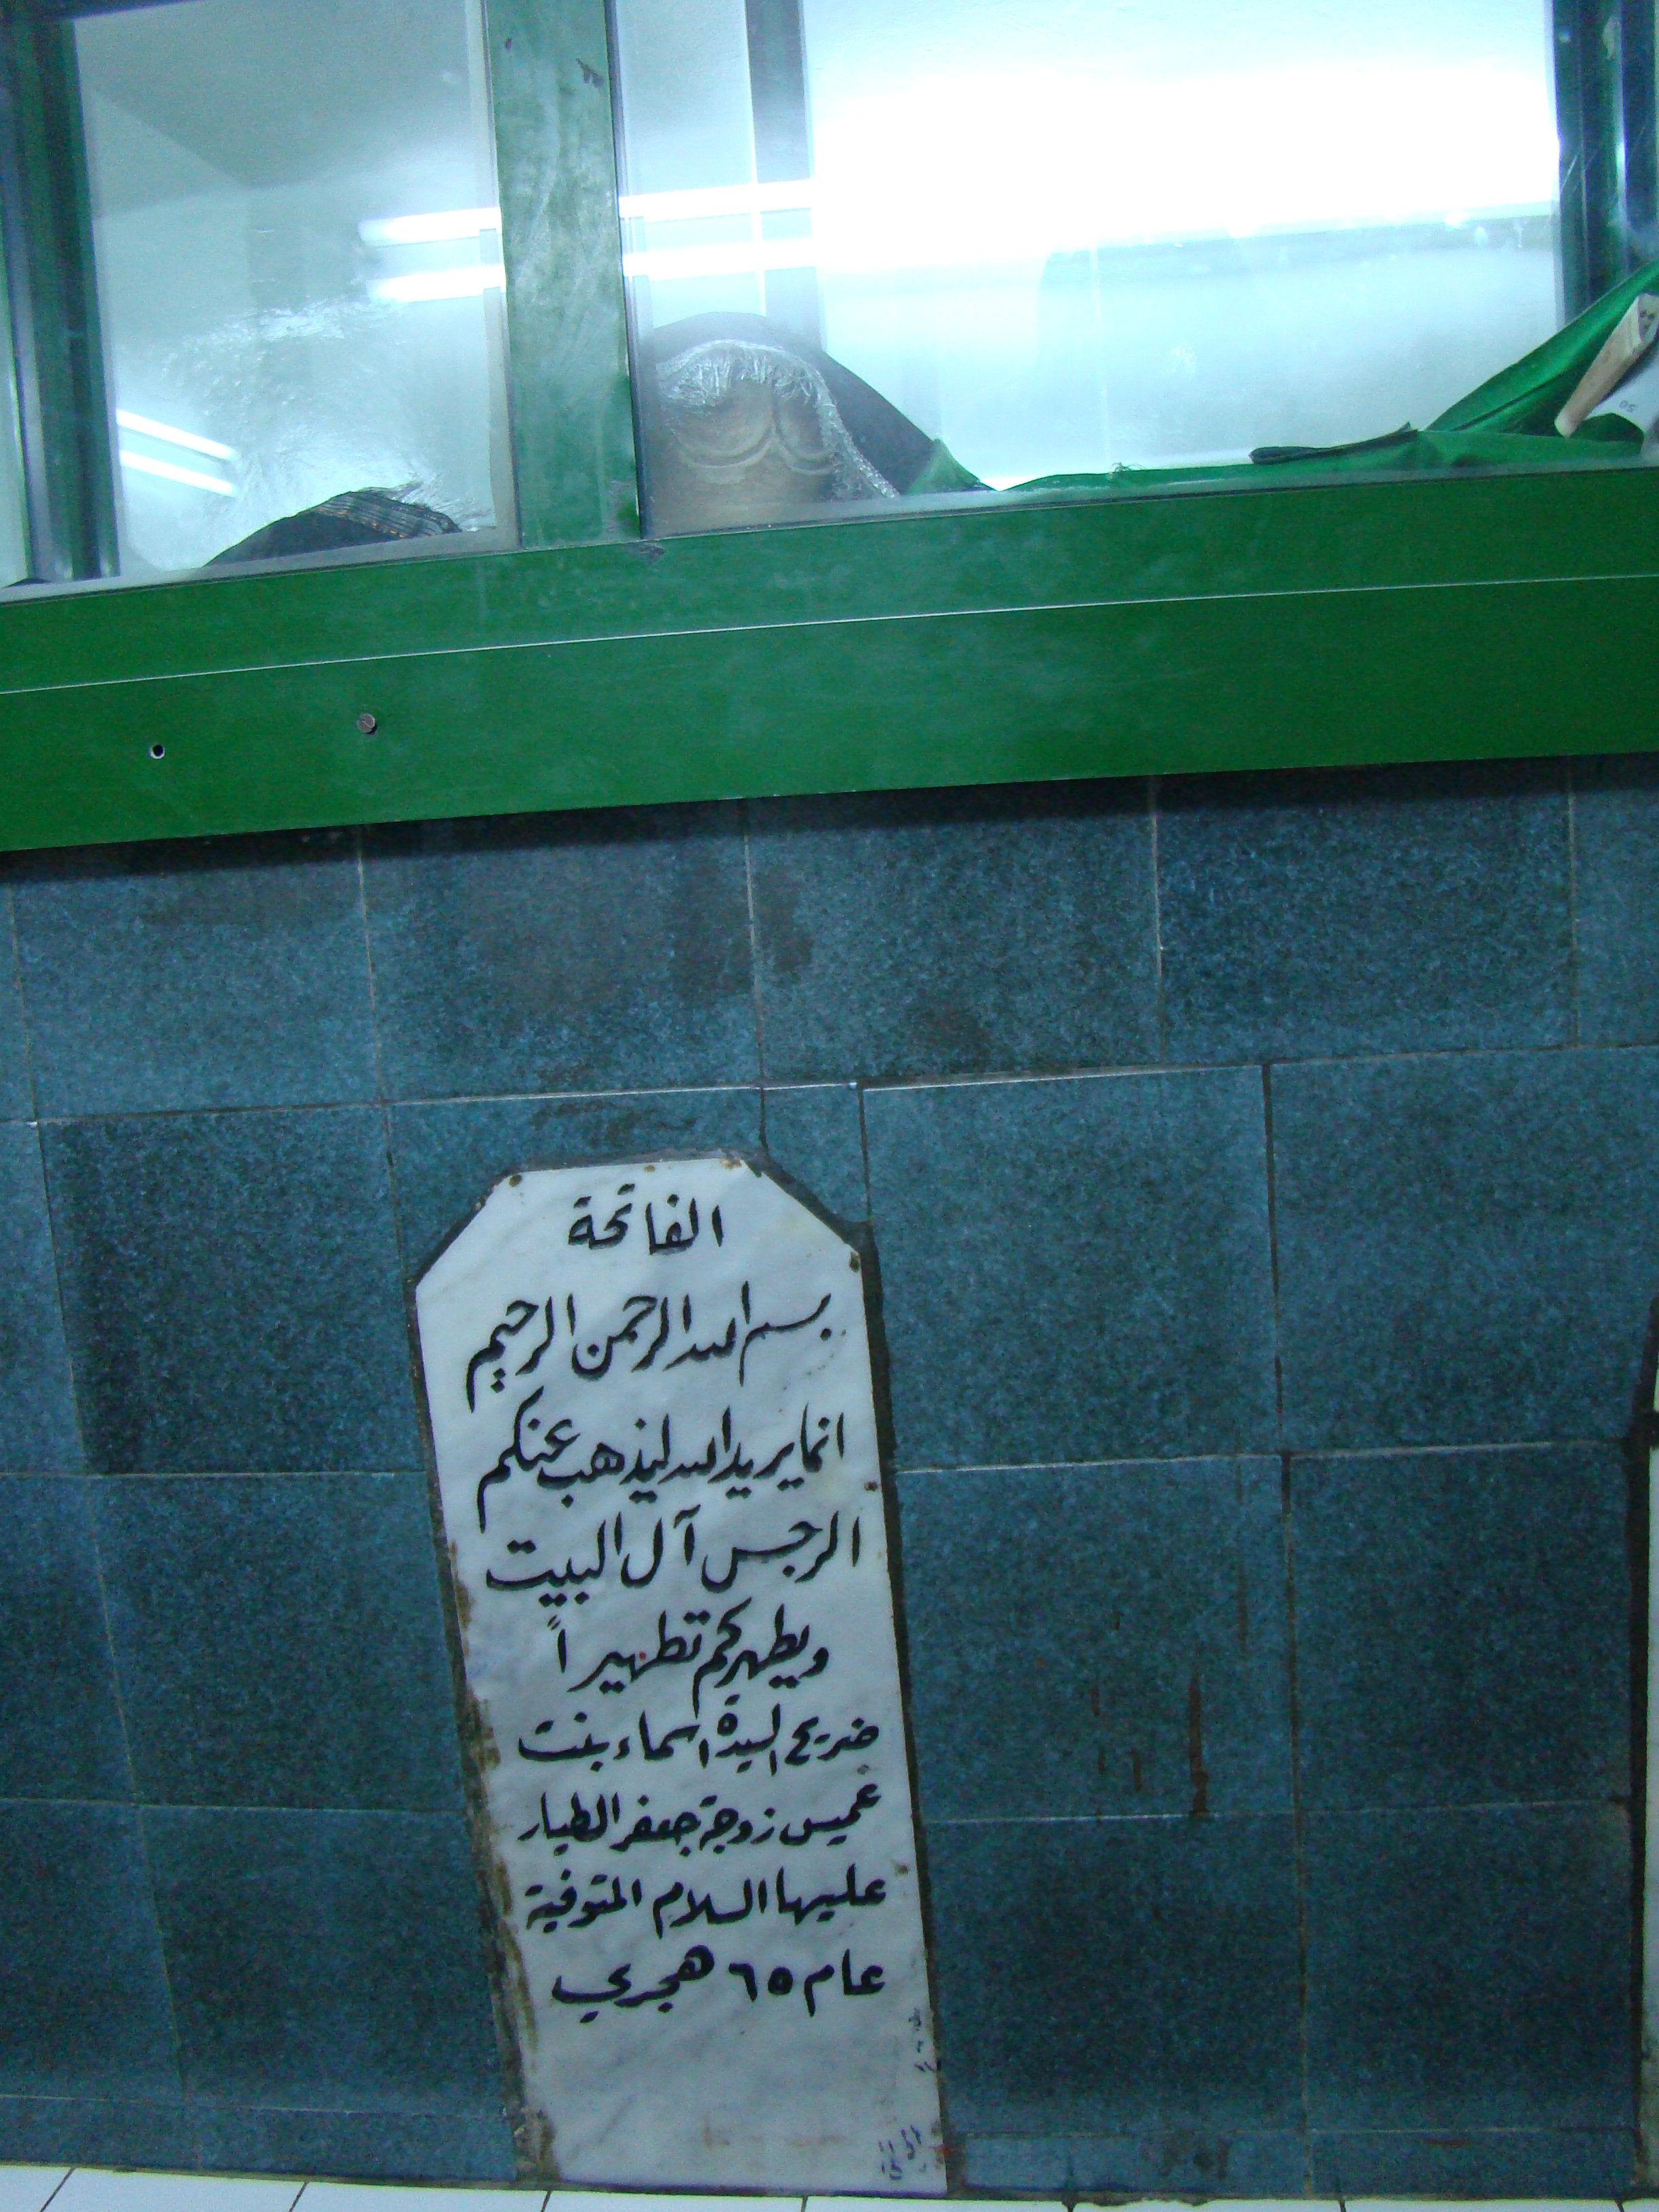 الفاتحة
بسم الله الرحمن الرحيم
انما يريد الله ليذهب عنكم
الرجس آل البيت
ويطهركم تطهيراً
ضريح السيدة اسماء بنت
عميس زوجة جعفر الطيار
عليها السلام المتوفية
عام ٦٥ هجري